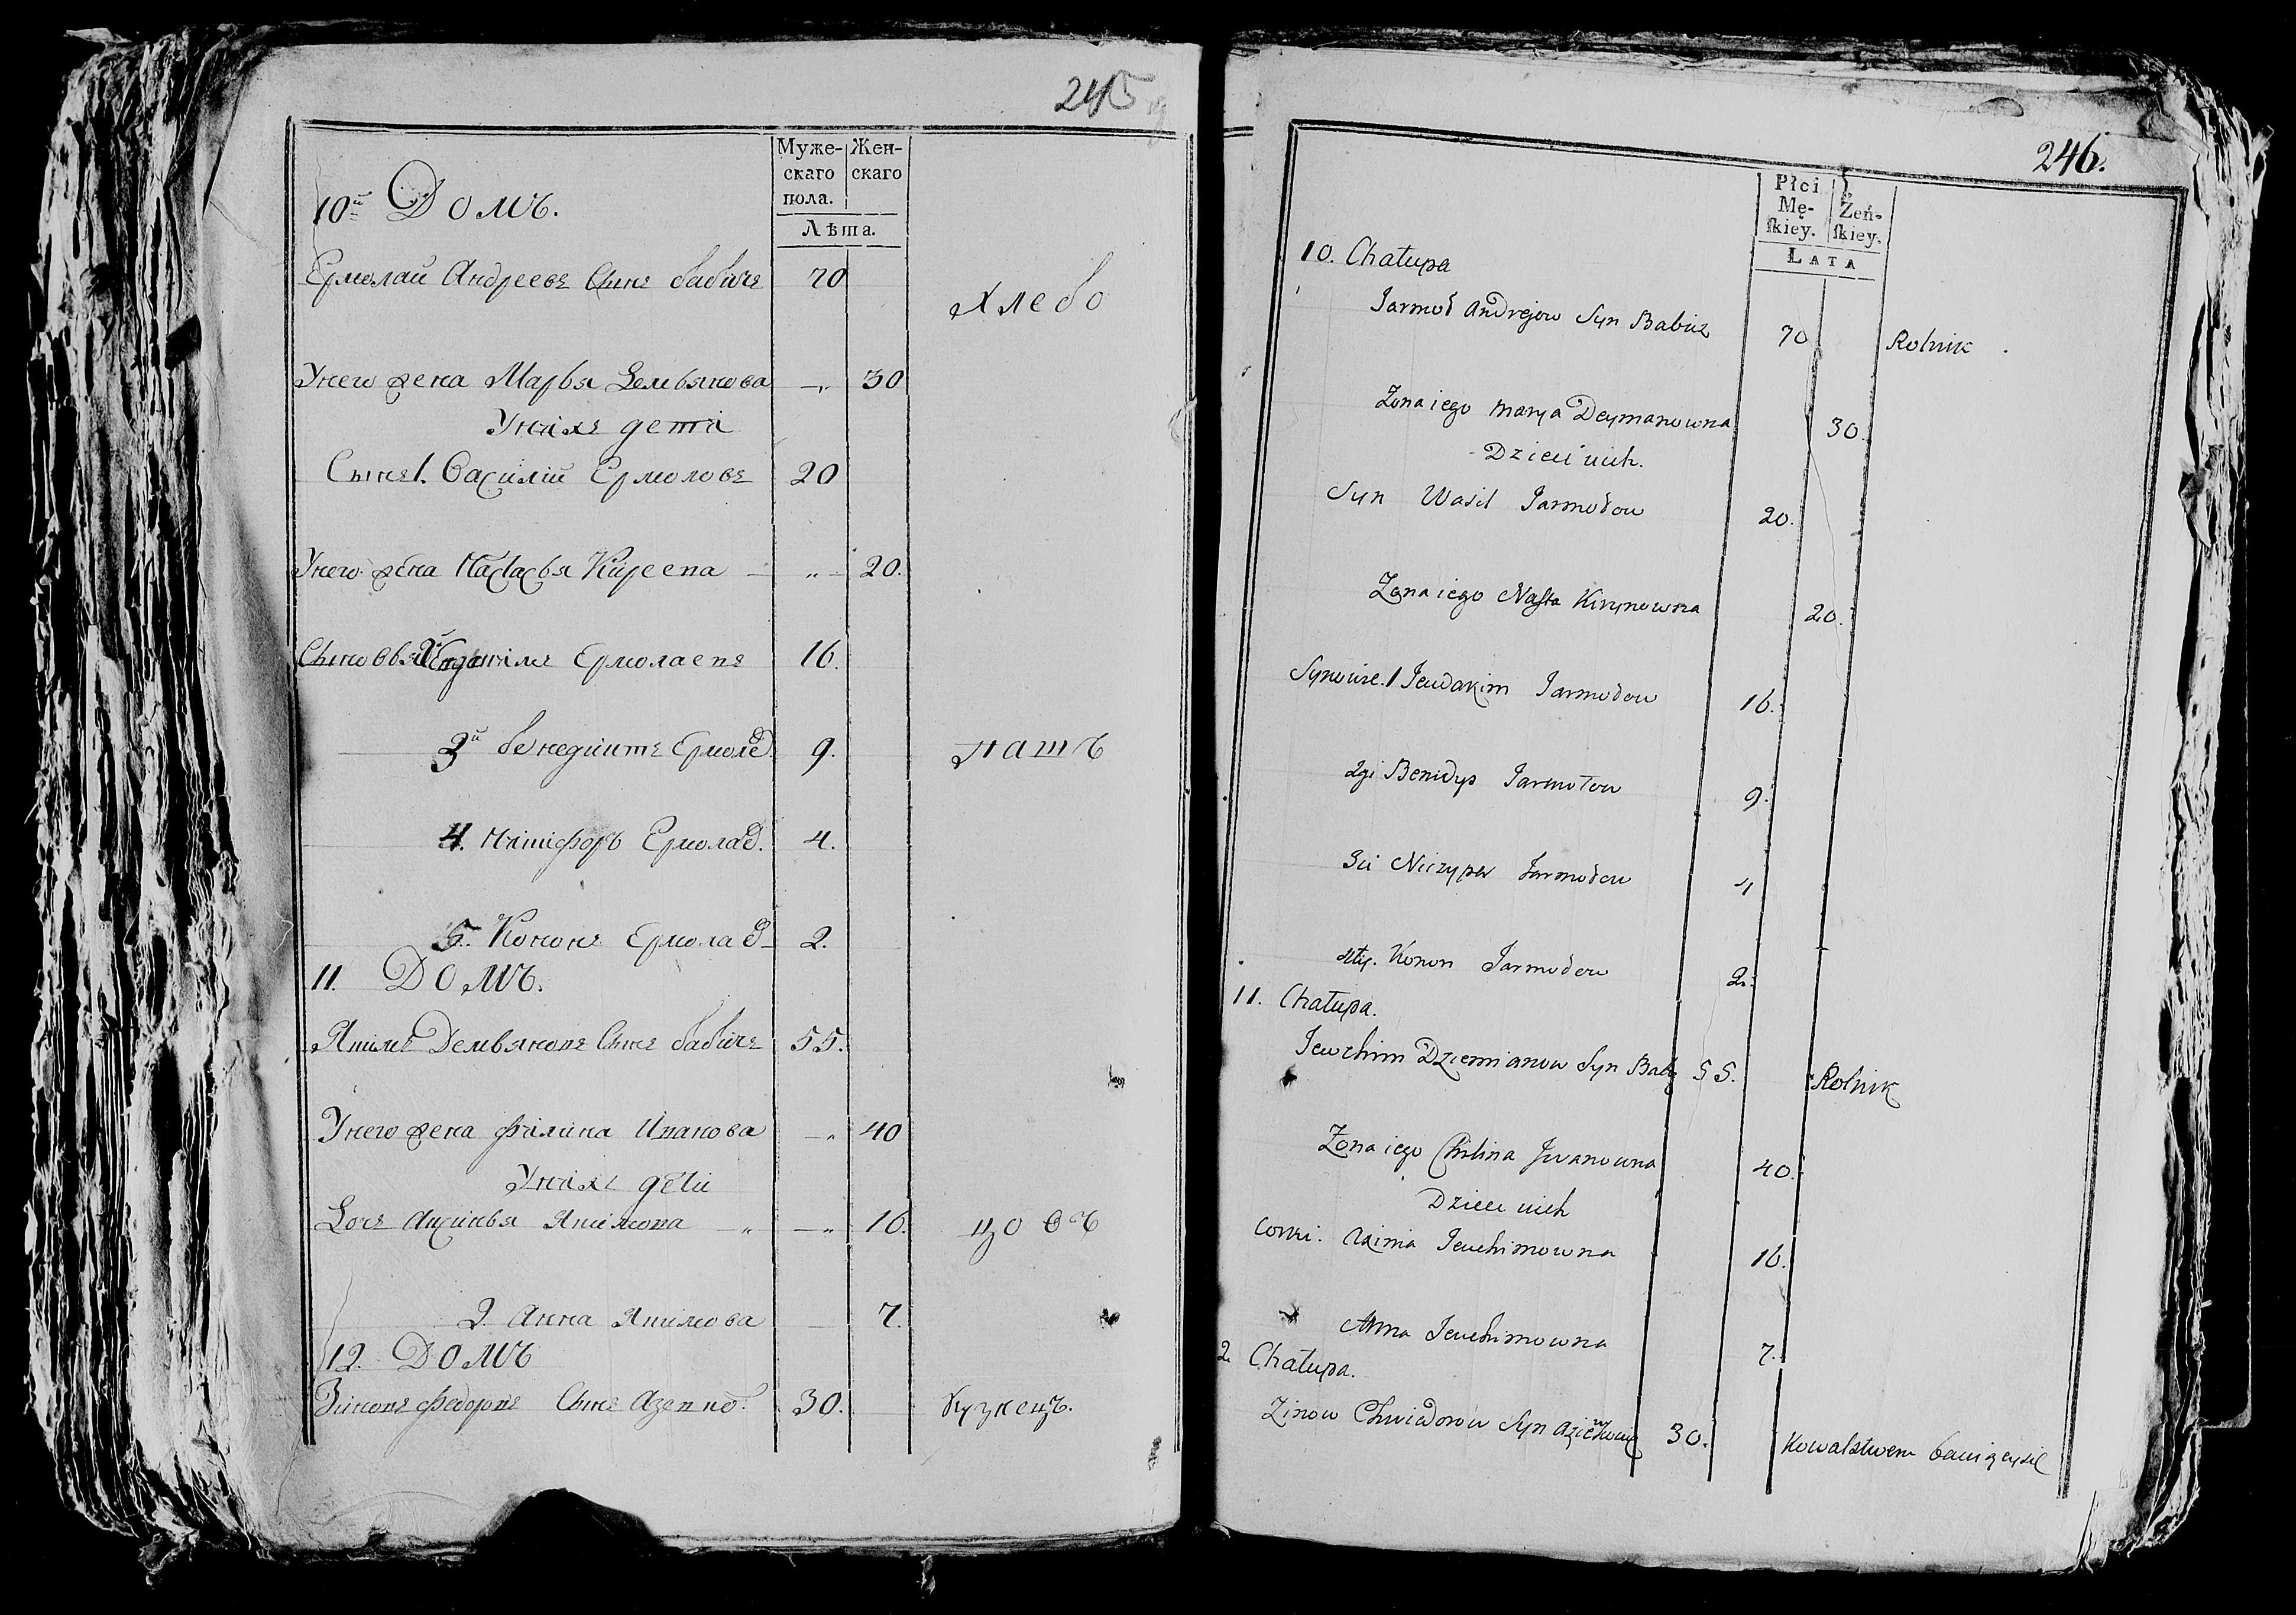 245
Муже-
скаго
пола.
Жен-
скаго
Лѣта.
10й Домъ.
Ермолай Андреевъ Сынъ бабичъ 70
хлебо
Унего жена Марья Демьянова —„ 30
Унихъ дети
Сынъ 1. Василий Ермоловъ 20
Унего жена Настасья Киреева — „ — 20.
Сыновья 2й Ермолаевъ 16.
3й бенедиктъ Ермол 9.
пашъ
4. Никифоръ Ермола 4.
5. Кононъ Ермола 2.
11. Домъ.
Якимъ Демьяновъ Сынъ бабичъ 55.
Унего жена Филина Иванова —„ 40
Унихъ дети
Доч Аксинья Якимова „ —„ 16.
цовъ
2 Анна Якимова 7.
12. Домъ
Зиновъ Федоровъ Сынъ 30.
Кузнецъ.
246.
Płci
Mę-
ſkiey.
Żeń-
ſkiey.
LATA
10. Chałupa
Jarmoł Andrejow Syn Babicz 70 Rolnik
Zona iego Marya Deymanowna 30.
Dzieci ich.
Syn Wasil Jarmołow 20.
Zona iego Nasta Kirynowna 20.
Synowie. 1 Jewdakim Jarmołow 16.
2gi Benidys Jarmołow 9.
3ci Niczyper Jarmołow 4
4ty. Konon Jarmołow 2.
11. Chałupa.
Jewchim Dziemianow Syn Bab 55. Rolnik
Zona iego Chilina Jwanowna 40.
Dzieci ich
Corki. Axinia Jewchimowna 16.
Anna Jewchimowna 7.
2 Chałupa.
Zinow Chwiedorow Syn 30. Kowalstwem bawiący się